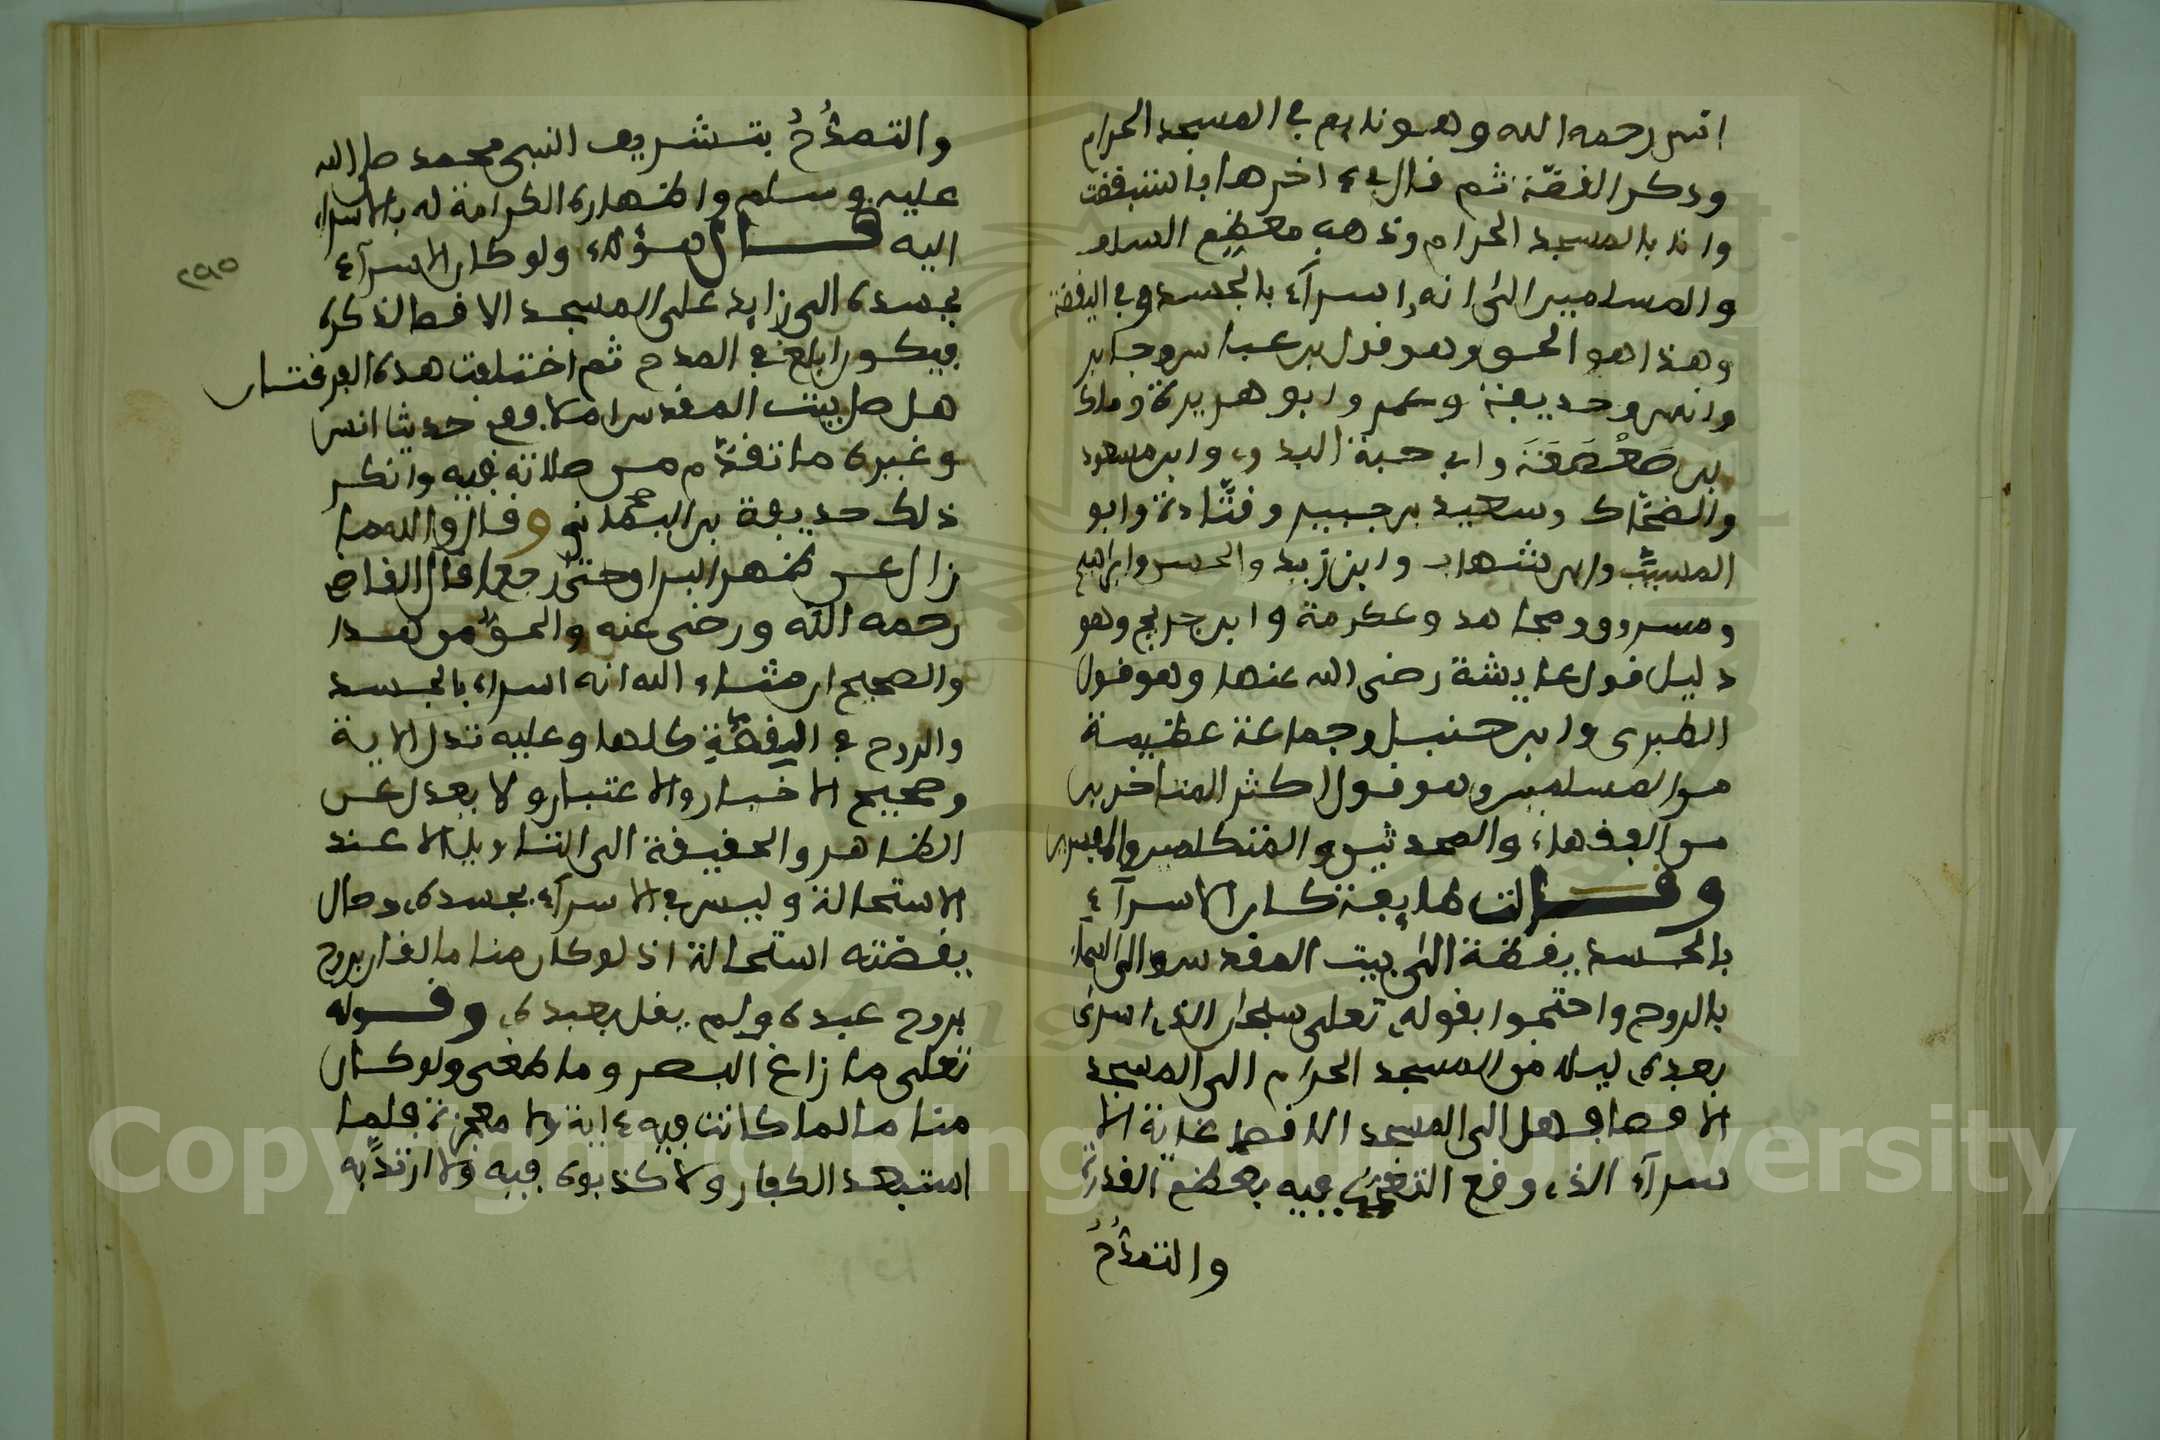 انس رحمه الله وهو نايم في المسجد الحرام
وذكر القصّة ثم قال في اخرها فاستيقظت
وانا بالمسجد الحرام وذهب معظم السلف
والمسلمين الى انه اسراء بالجسد وفي اليقظة
وهذا هو الحق وهو قول بن عباس وجابر
وانس وحذيفة وعمر وابو هريرة ومالك
بن صَعْصَعَة وابي حبة البدري وابن مسعود
والضحّاك وسعيد بن جبير وقتّادة وابو
المسيّب وابن شهاب وابن زيد والحسن وابراهيم
ومسروق ومجاهد وعكرمة وابن جريج وهو
دليل قول عايشة رضى الله عنها وهو قول
الطبرى وابن حنبل وجماعة عظيمة
من المسلمين وهو قول اكثر المتاخرين
من الفقهاء والمحدثين والمتكلمين والمفسرين
وقالت طايفة كان الاسراء
بالجسد يقظة الى بيت المقدس والى السماء
بالروح واحتجوا بقوله تعلى سبحان الذي اسرى
بعبده ليلا من المسجد الحرام الى المسجد
الاقصا فجعل الى المسجد الاقصا غاية الا
سراء الذي وقع التعجب فيه بعظم القدرة
والتمدُّحُ
والتمدُّحُ بتشريف النبى محمد صلى الله
عليه وسلم واظهاره الكرامة له بالاسراء
اليه قال هؤلاء ولو كان الاسراء
٢٩٥
بجسده الى زايد على المسجد الاقصا لذكره
فيكون ابلغ في المدح ثم اختلفت هذه الفرقتان
هل صلى ببيت المقدس ام لا ففي حديث انس
وغيره ما تقدّم من صلاته فيه وانكر
ذلك حذيفة بن اليماني وقال والله ما
زال عن ظهر البراق حتى رجعا قال القاضي
رحمه الله ورضى عنه والحق من هذا
والصحيح ان شاء الله انه اسراء بالجسد
والروح في اليقظة كلها وعليه تدل الاية
وصحيح الاخبار والاعتبار ولا يعدل عن
الظاهر والحقيقة الى التاويل الا عند
الاستحالة وليس في الاسراء بجسده وحال
يقضته استحالة اذ لو كان مناما لقال بروح
بروح عبده ولم يقل بعبده وقوله
تعلى ما زاغ البصر وما طغى ولو كان
مناما لما كانت فيه ءاية ولا معجزة فلما
استبعد الكفار ولا كذبوه فيه ولا ارتدّ به